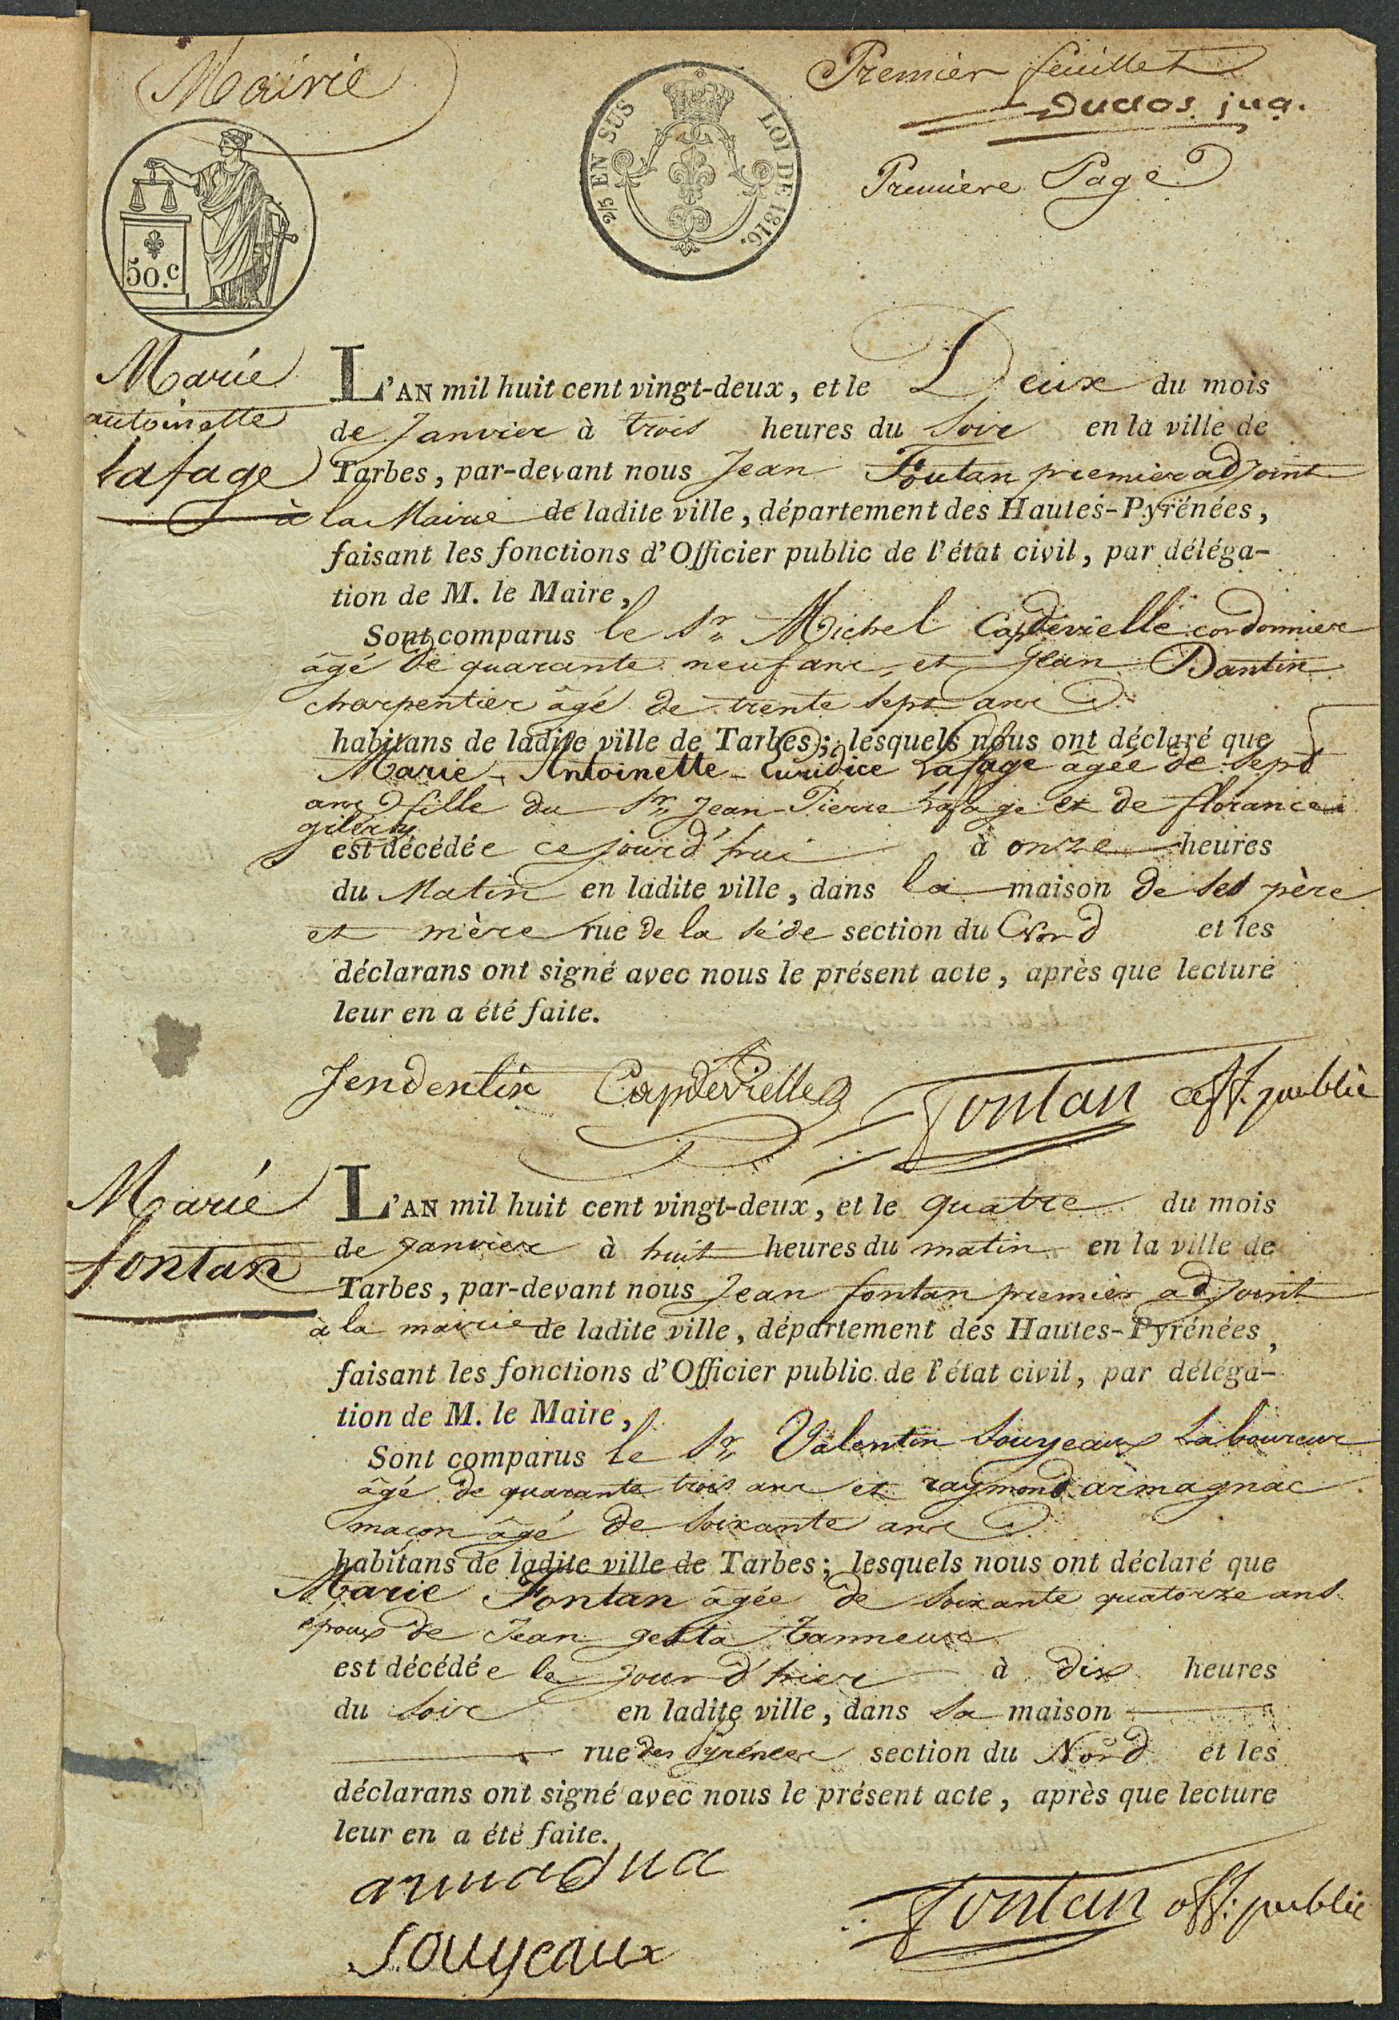 Mairie
Premier feuillet
Duclos jug.
Première Page
2/5 EN SUS LOI DE 1816.
50.c
Marie
antoinette
Lafage
L'AN mil huit cent vingt-deux, et le Deux du mois
de Janvier à trois heures du Soir en la ville de
Tarbes, par-devant nous Jean Foutan premier adjoint
à la Mairie de ladite ville, département des Hautes-Pyrénées,
faisant les fonctions d'Officier public de l'état civil, par déléga-
tion de M. le Maire,
Sont comparus le Sr. Michel Capdevielle cordonnier
âgé de quarante neuf ans, et Jean Dantin
charpentier âgé de trente sept ans
habitans de ladite ville de Tarbes; lesquels nous ont déclaré que
Marie-Antoinette-Euridice Lafage agée de Sept
ans fille du Sr. Jean-Pierre Lafage et de florance
est décédée ce jourd'hui à onze heures
du Matin en ladite ville, dans la maison de ses père
et mère rue de la séde section du Nord et les
déclarans ont signé avec nous le présent acte, après que lecture
leur en a été faite.
Jendentin Capdevielle Fontan off. public
Marie
fontan
L'AN mil huit cent vingt-deux, et le quatre du mois
de Janvier à huit heures du matin en la ville de
Tarbes, par-devant nous Jean fontan premier adjoint
à la mairie de ladite ville, département des Hautes-Pyrénées,
faisant les fonctions d'Officier public de l'état civil, par déléga-
tion de M. le Maire,
Sont comparus le Sr. Valentin Souyeaux Laboureur
âgé de quarante trois ans et raymond armagnac
maçon âgé de Soixante ans
habitans de ladite ville de Tarbes; lesquels nous ont déclaré que
Marie Fontan âgée de Soixante quatorze ans
époux de Jean gesta tanneur
est décédée le jour d'hier à dix heures
du Soir en ladite ville, dans sa maison
rue des Pyrénées section du Nord et les
déclarans ont signé avec nous le présent acte, après que lecture
leur en a été faite.
Fontan off. public
Souyeaux